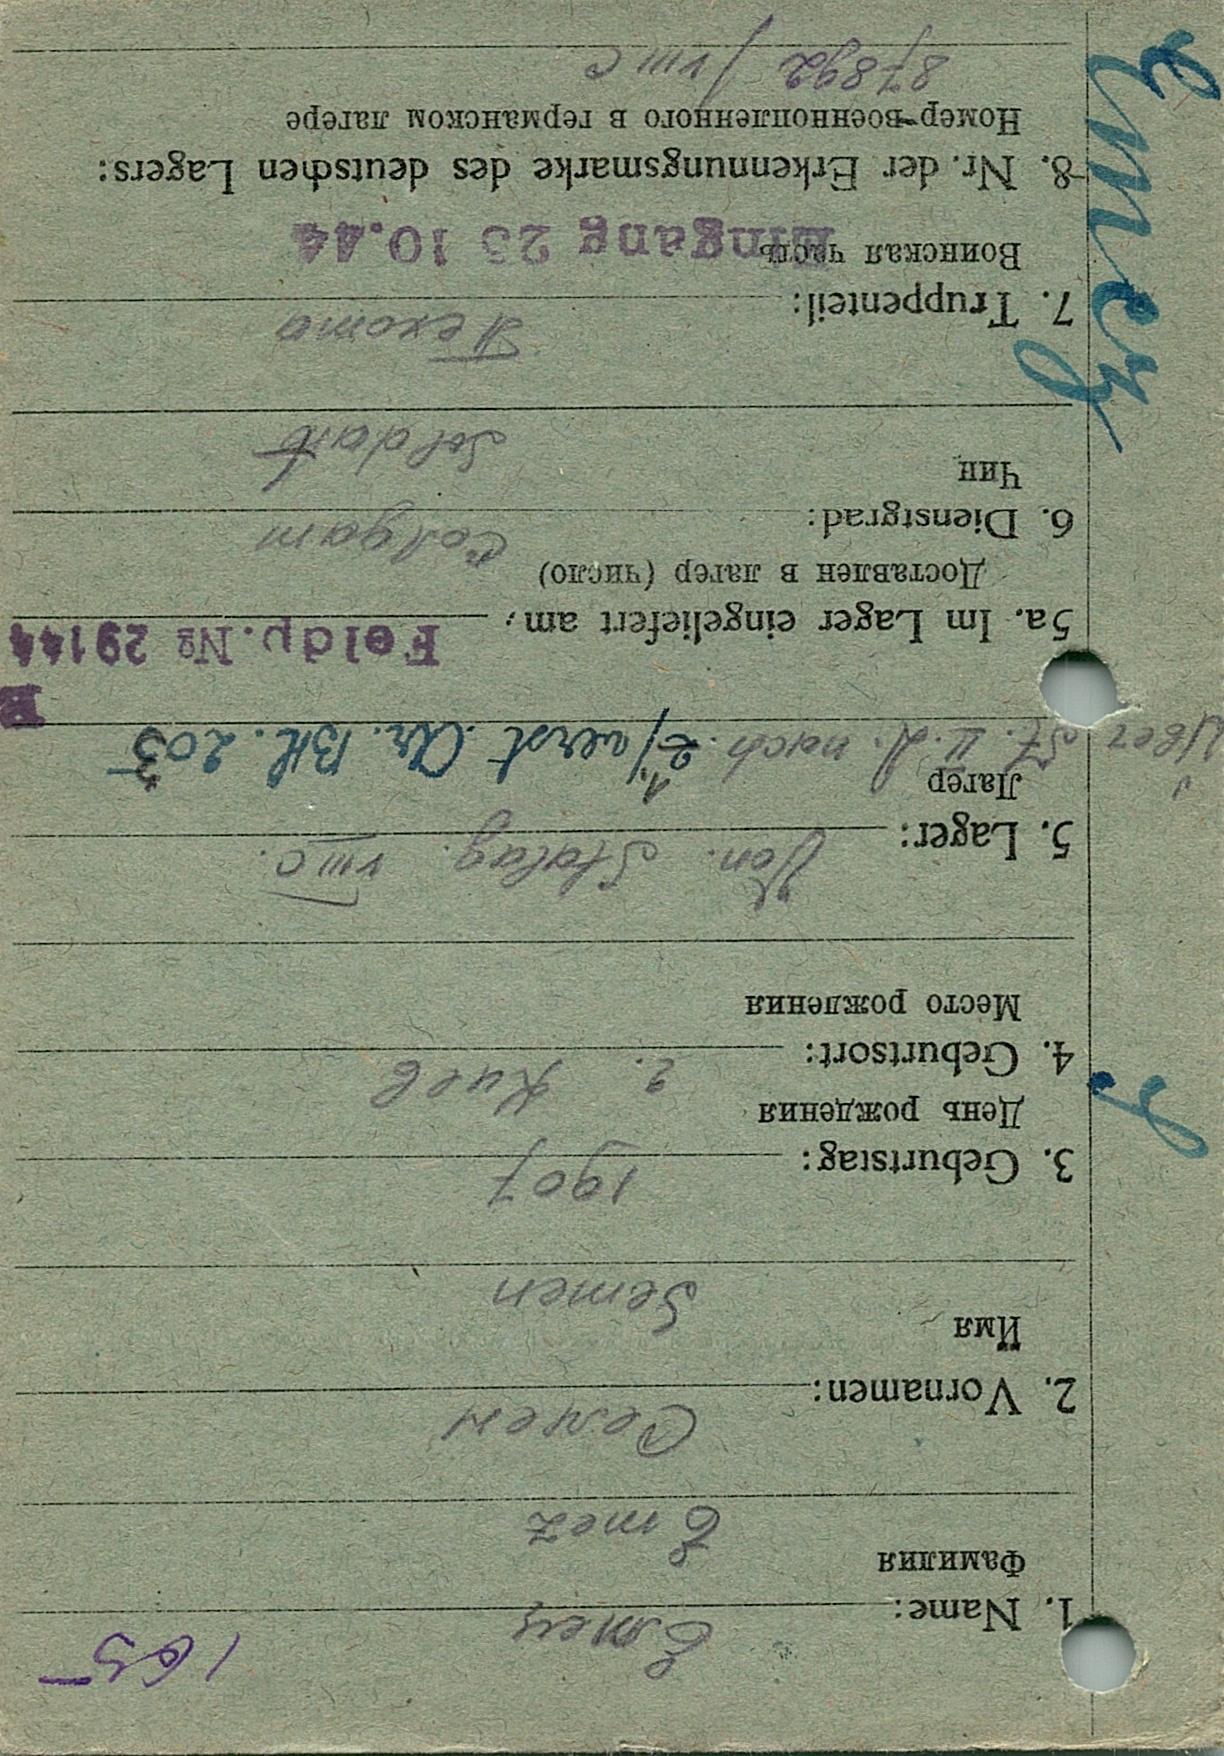 165
1. Name: Емец
Фамилия
Emez
2. Vornamen: Семен
Имя
Semen
3. Geburtstag: 1907
День рождения
4. Geburtsort: г. Киев
Место рождения
5. Lager: Von. Stalag. VIII C.
Лагер
Über St. II. D. nach. 1/verst. Ar. Btl. 203
E
5a. Im Lager eingeliefert am, Feldp. № 29144
Доставлен в лагер (число)
6. Dienstgrad: Солдат
Чин
Soldat
7. Truppenteil: Пехота
Воинская часть
Eingang 23 10.44
8. Nr. der Erkennungsmarke des deutschen Lagers:
Номер военнопленного в германском лагере
87892 / VIII C
Emez